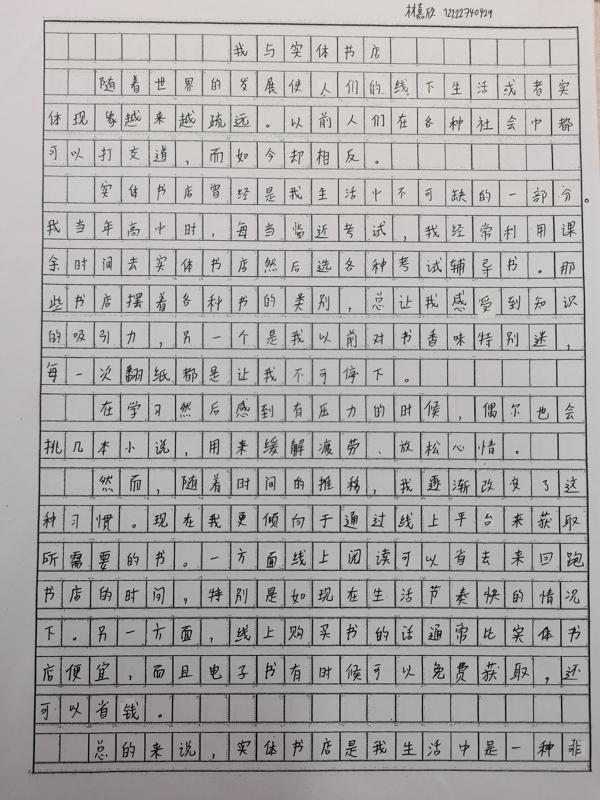 林嘉欣 12122740429
我与实体书店
随着世界的发展使人们的线下生活或者实
体现象越来越疏远。以前人们在各种社会中都
可以打交道，而如今却相反。
实体书店曾经是我生活中不可缺的一部分。
我当年高中时，每当临近考试，我经常利用课
余时间去实体书店然后选各种考试辅导书。那
些书店摆着各种书的类别，总让我感受到知识
的吸引力，另一个是我以前对书香味特别迷，
每一次翻纸都是让我不可停下。
在学习然后感到有压力的时候，偶尔也会
挑几本小说，用来缓解疲劳、放松心情。
然而，随着时间的推移，我逐渐改变了这
种习惯。现在我更倾向于通过线上平台来获取
所需要的书。一方面线上阅读可以省去来回跑
书店的时间，特别是如现在生活节奏快的情况
下。另一方面，线上购买书的话通常比实体书
店便宜，而且电子书有时候可以免费获取，还
可以省钱。
总的来说，实体书店是我生活中是一种非